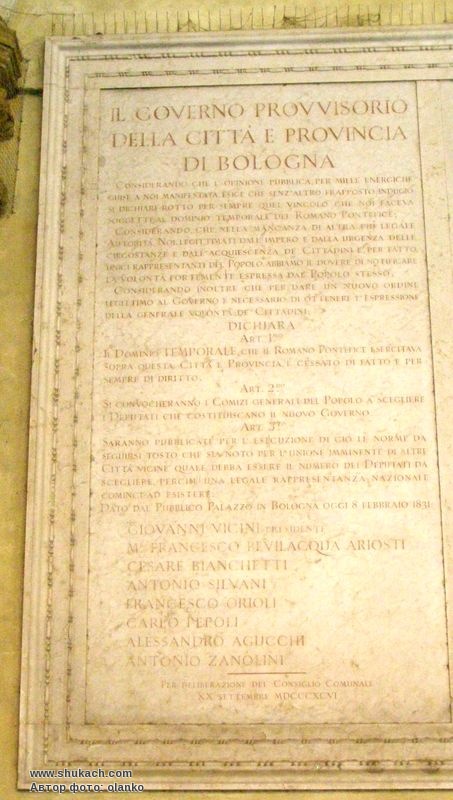 IL GOVERNO PROVVISORIO
DELLA CITTÀ E PROVINCIA
DI BOLOGNA
CONSIDERANDO CHE L'OPINIONE PUBBLICA, PER MILLE ENERGICHE
GUISE A NOI MANIFESTATA, ESIGE CHE SENZ'ALTRO FRAPPOSTO INDUGIO
SI DICHIARI ROTTO PER SEMPRE QUEL VINCOLO CHE NOI FACEVA
SOGGETTI AL DOMINIO TEMPORALE DEL ROMANO PONTEFICE;
CONSIDERANDO, CHE NELLA MANCANZA DI ALTRA PIÙ LEGALE
AUTORITÀ, NOI, LEGITTIMATI DALL'IMPERO E DALLA URGENZA DELLE
CIRCOSTANZE E DALL'ACQUIESCENZA DE' CITTADINI E, PER FATTO,
UNICI RAPPRESENTANTI DEL POPOLO, ABBIAMO IL DOVERE DI NOTIFICARE
LA VOLONTÀ FORTEMENTE ESPRESSA DAL POPOLO STESSO;
CONSIDERANDO INOLTRE CHE PER DARE UN NUOVO ORDINE
LEGITTIMO AL GOVERNO È NECESSARIO DI OTTENERE L'ESPRESSIONE
DELLA GENERALE VOLONTÀ DE' CITTADINI;
DICHIARA
ART. 1mo
IL DOMINIO TEMPORALE, CHE IL ROMANO PONTEFICE ESERCITAVA
SOPRA QUESTA CITTÀ E PROVINCIA, È CESSATO DI FATTO E PER
SEMPRE DI DIRITTO.
ART. 2do
SI CONVOCHERANNO I COMIZI GENERALI DEL POPOLO A SCEGLIERE
I DEPUTATI CHE COSTITUISCANO IL NUOVO GOVERNO
ART. 3zo
SARANNO PUBBLICATE PER L'ESECUZIONE DI CIÒ LE NORME DA
SEGUIRSI TOSTO CHE SIA NOTO PER L'UNIONE IMMINENTE DI ALTRE
CITTÀ VICINE QUALE DEBBA ESSERE IL NUMERO DEI DEPUTATI DA
SCEGLIERE, PERCHÈ UNA LEGALE RAPPRESENTANZA NAZIONALE
COMINCI AD ESISTERE.
DATO DAL PUBBLICO PALAZZO IN BOLOGNA OGGI 8 FEBBRAIO 1831.
GIOVANNI VICINI PRESIDENTE
M.se FRANCESCO BEVILACQUA ARIOSTI
CESARE BIANCHETTI
ANTONIO SILVANI
FRANCESCO ORIOLI
CARLO PEPOLI
ALESSANDRO AGUCCHI
ANTONIO ZANOLINI
PER DELIBERAZIONE DEL CONSIGLIO COMUNALE
XX SETTEMBRE MDCCCXCVI
www.shukach.com
Автор фото: olanko